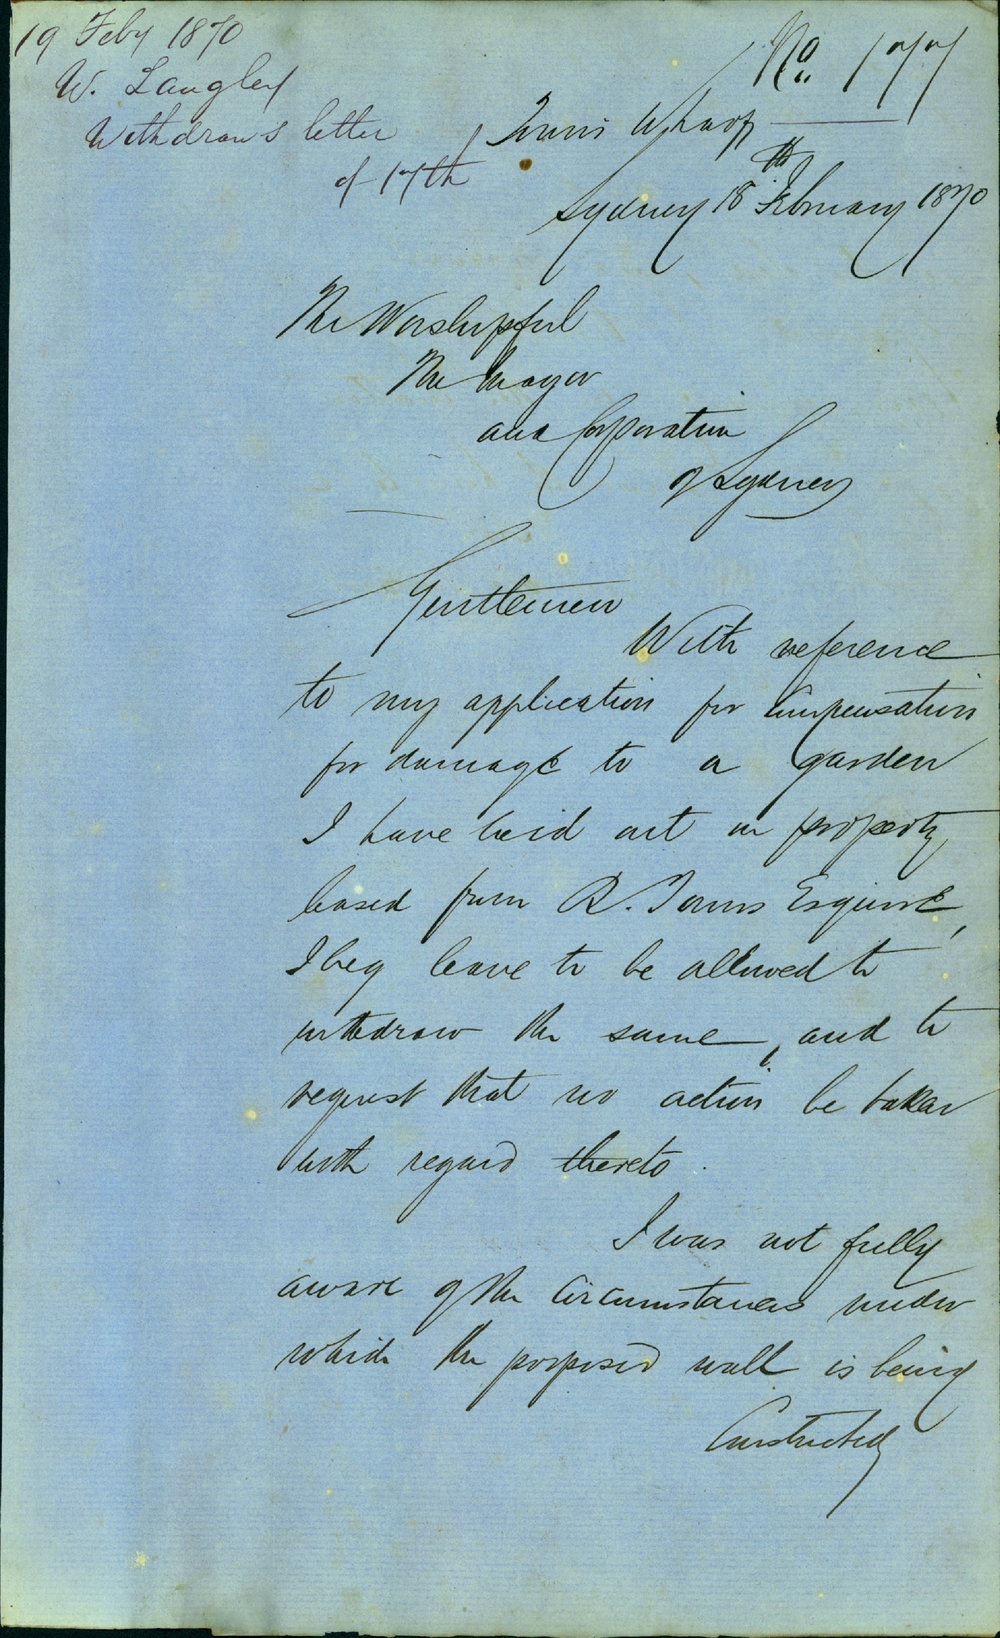 19 Feby 1870
W. Langley
Withdraws letter
of 17th
No. 177
Towns Wharf
Sydney 18th February 1870
The Worshipful
The Mayor
and Corporation
of Sydney
Gentlemen
With reference
to my application for compensation
for damage to a garden
I have laid out on property
leased from R. Towns Esquire,
I beg leave to be allowed to
withdraw the same, and to
request that no action be taken
with regard thereto.
I was not fully
aware of the circumstances under
which the proposed wall is being
Constructed